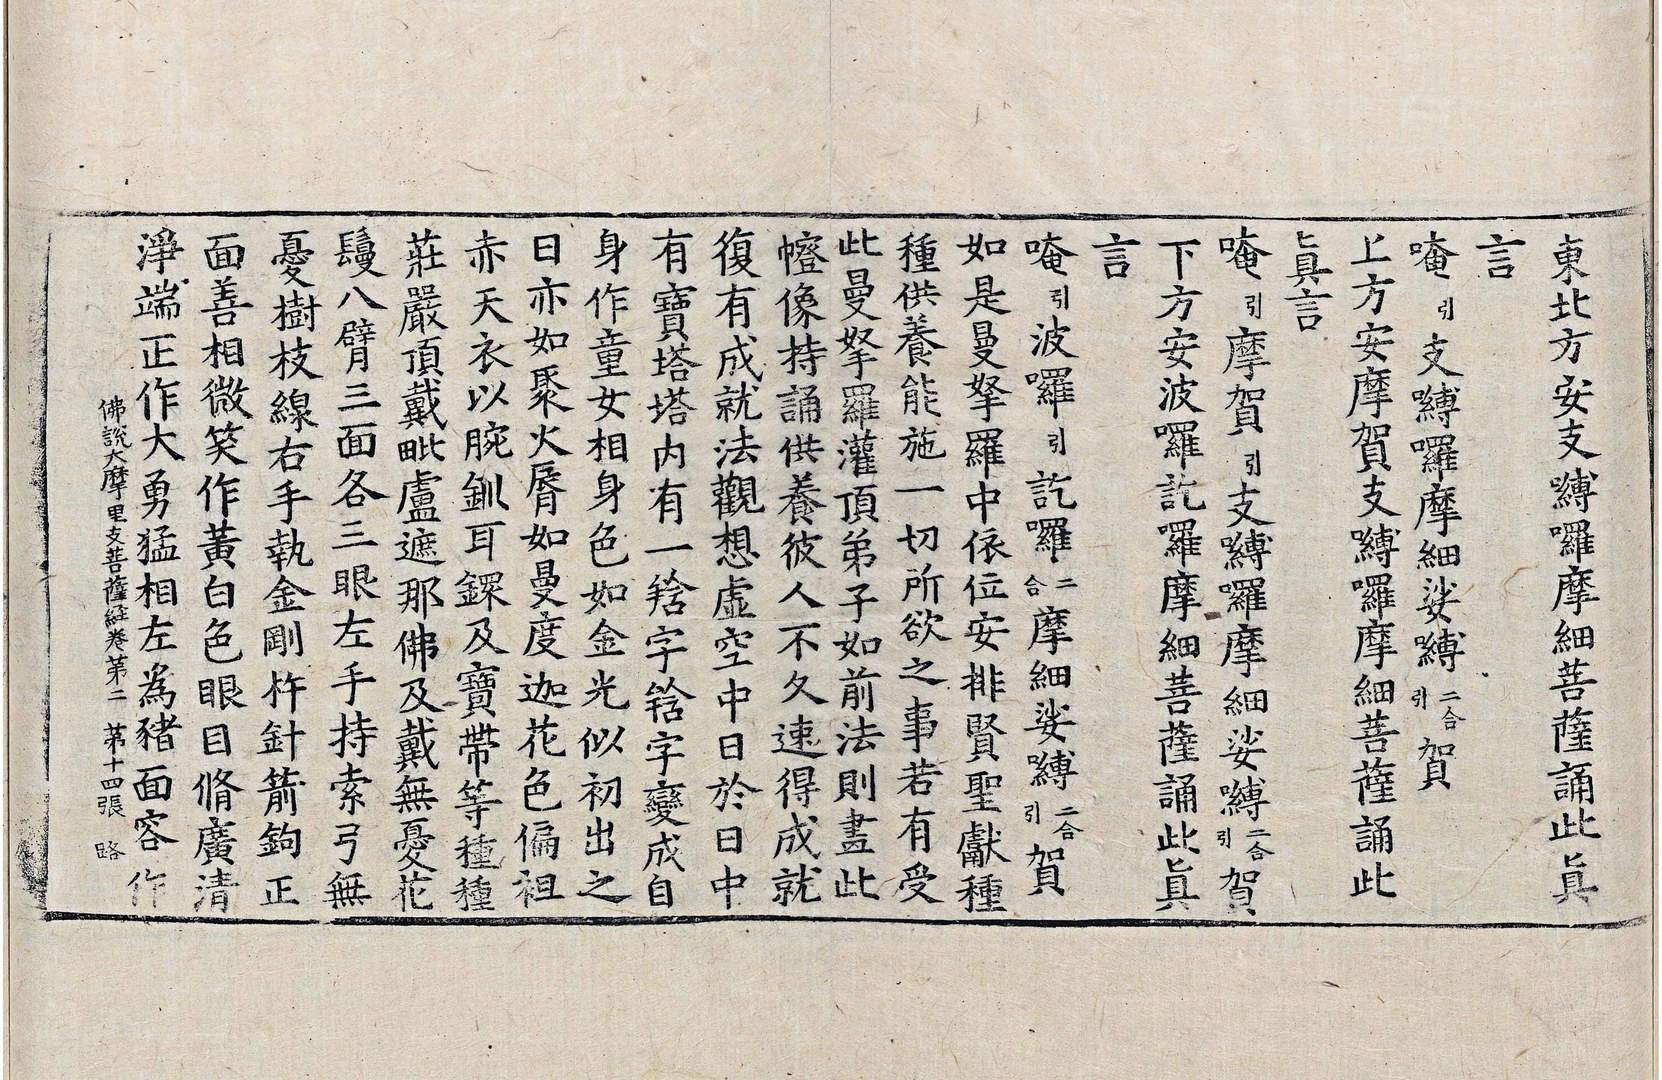 東北方安支嚩囉摩細菩薩誦此眞
言
唵引支嚩囉摩細娑嚩二合引賀
上方安摩賀支嚩囉摩細菩薩誦此
眞言
唵引摩賀引支嚩囉摩細娑嚩二合引賀
下方安波囉訖囉摩細菩薩誦此眞
言
唵引波囉引訖囉二合摩細娑嚩二合引賀
如是曼拏羅中依位安排賢聖獻種
種供養能施一切所欲之事若有受
此曼拏羅灌頂弟子如前法則畫此
㡧像持誦供養彼人不久速得成就
復有成就法觀想虛空中日於日中
有寶塔塔內有一𤚥字𤚥字變成自
身作童女相身色如金光似初出之
日亦如聚火脣如曼度迦花色偏袒
赤天衣以腕釧耳鐶及寶帶等種種
莊嚴頂戴毗盧遮那佛及戴無憂花
鬘八臂三面各三眼左手持索弓無
憂樹枝線右手執金剛杵針箭鉤正
面善相微笑作黃白色眼目脩廣清
淨端正作大勇猛相左為豬面容作
佛說大摩里支菩薩經卷第二 第十四張 路